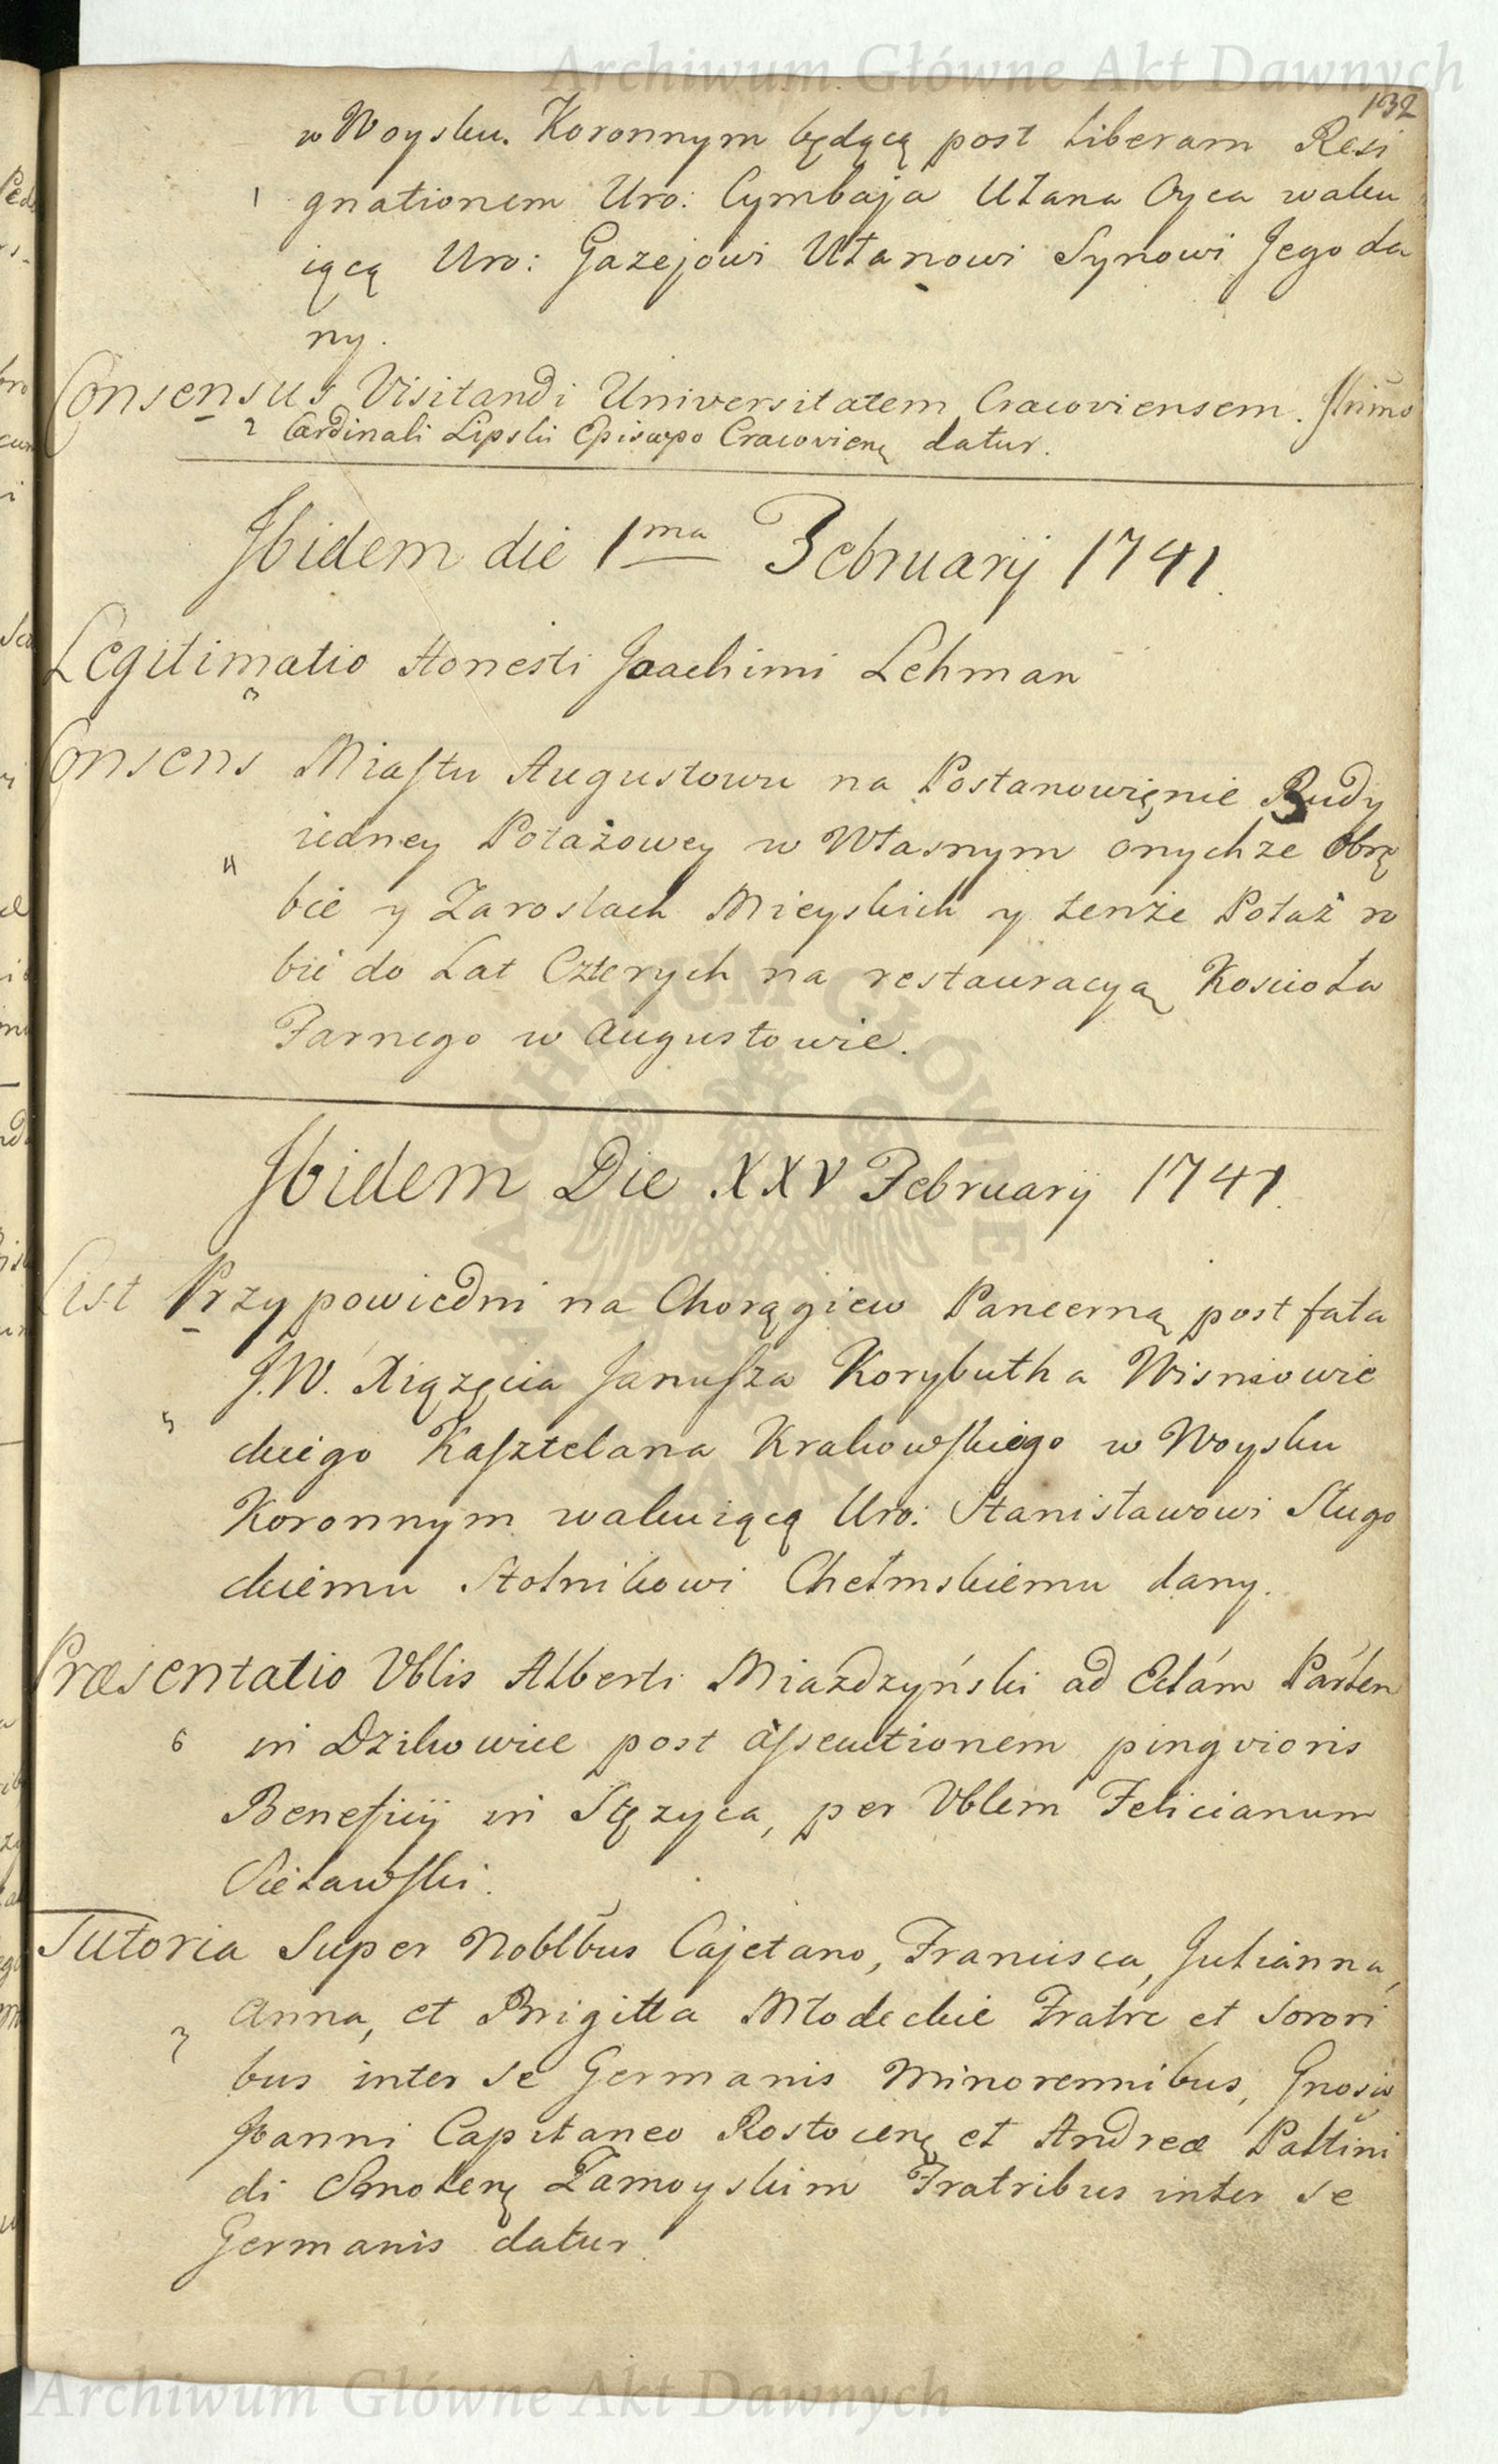 Archiwum Główne Akt Dawnych
132
w Woysku Koronnym będącą post liberam Resi
1 gnationem Uro: Cymbaja Ułana Oyca waku
iącą Uro: Gazejowi Ułanowi Synowi Jego da
ny.
Consensus Visitandi Universitatem Cracoviensem. Jllrimo
2 Cardinali Lipski Episcopo Cracovienę datur.
Jbidem die 1ma Februarij 1741.
Legitimatio Honesti Joachimi Lehman
3
Consens Miastu Augustowu na Postanowięnie Budy
iedney Potażowey w Własnym onychże Obrę
4
bie y Zaroslach Mieyskich y tenże Potaż ro
bić do Lat Czterych na restauracyą Kosciola
Farnego w Augustowie.
Jbidem Die XXV Februarij 1741.
List Przypowiedni na Chorągiew Pancerną post fata
J.W. Xiążęcia Janusza Korybutha Wisniowie
5
ckiego Kasztelana Krakowskiego w Woysku
Koronnym wakuiącą Uro: Stanisławowi Sługo
ckiemu Stolnikowi Chełmskiemu dany.
Præsentatio Vblis Alberti Miazdzyński ad Eclám Párlem
6 in Dzikowice post assecutionem pingvioris
Beneficij in Stęzyca, per Vblem Felicianum
Sielawski.
Tutoria Super Noblbus Cajetano, Francisca, Julianna,
Anna, et Brigitta Młodeckie Fratre et Sorori
7
bus inter se Germanis Minorennibus, Gnosis
Joanni Capitaneo Rostocienę et Andreæ Pallini
di Smolenę Zamoyskim Fratribus inter se
Germanis datur.
Archiwum Główne Akt Dawnych